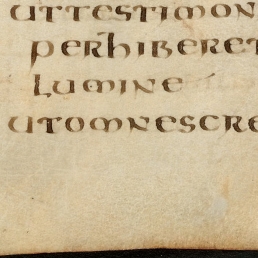 uttestimon
perhiberet
lumine
utomnescre